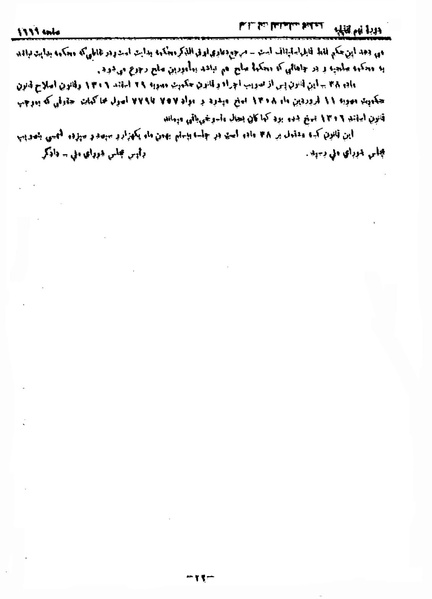 دوره نهم تقنینیه صفحه ۱۶۶۹
می دهد این حکم فقط قابل استیناف است - مرجع دعاوی فوق الذکر محکمه بدایت است و در نقاطی که محکمه بدایت نباشد
به محکمه صلحیه و در جاهائی که محکمه صلح هم نباشد به مأمورین صلح رجوع می شود.
ماده ۳۸ - این قانون پس از تصویب اجراء و قانون حکمیت مصوبه ۲۹ اسفند ۱۳۰۶ و قانون اصلاح قانون
حکمیت مصوبه ۱۱ فروردین ماه ۱۳۰۸ نسخ میشود و مواد ۷۵۷ تا ۷۷۹ اصول محاکمات حقوقی که بموجب
قانون اسفند ۱۳۰۶ نسخ شده بود کماکان بحال منسوخی باقی میماند
این قانون که مشتمل بر ۳۸ ماده است در جلسه بیستم بهمن ماه یکهزار و سیصد و سیزده شمسی بتصویب
مجلس شورای ملی رسید. رئیس مجلس شورای ملی - دادگر
-۲۲-